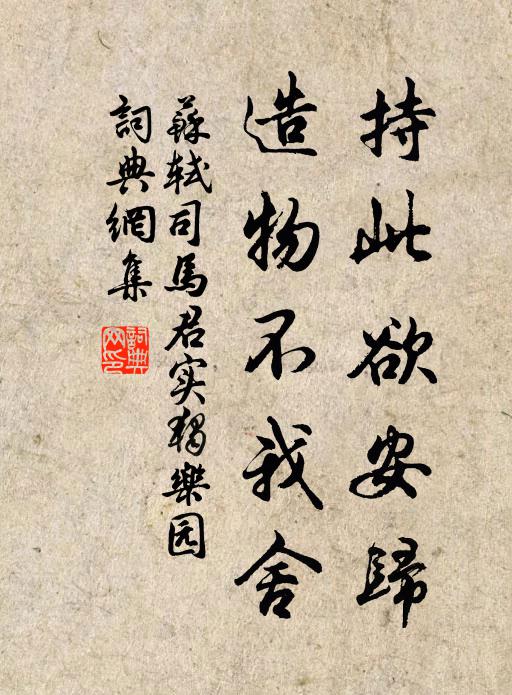 持此欲安歸
造物不我舍
蘇軾司馬君实獨樂园
詞典網集
詞典網印